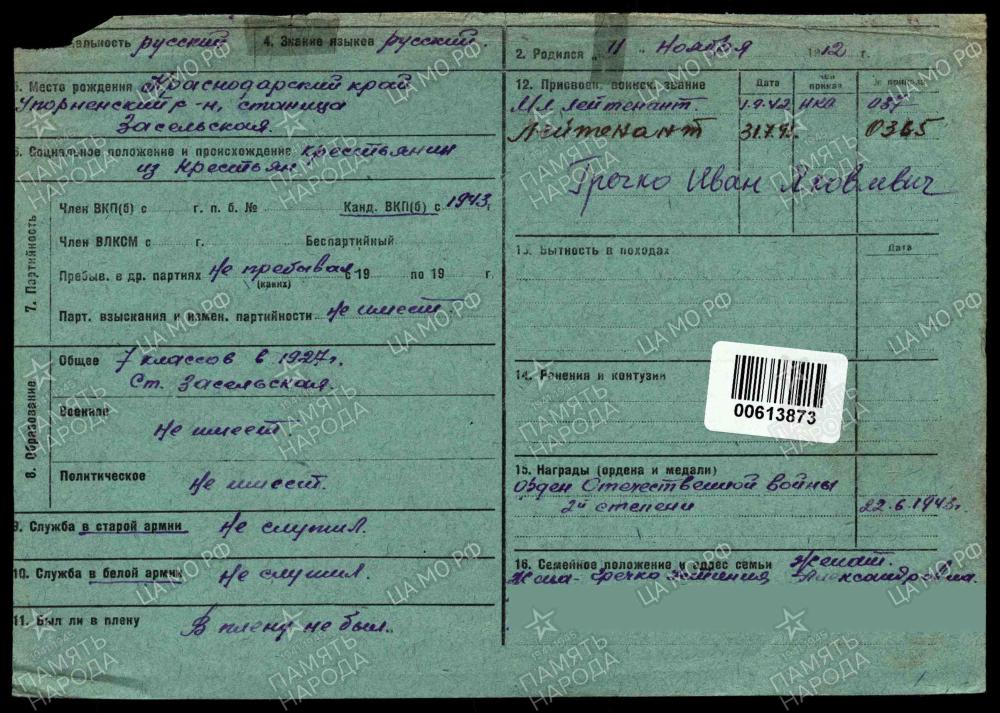 альность русский 4. Знание языков русский.
5. Место рождения Краснодарский край
Упорненский р-н, станица
Засельская.
6. Социальное положение и происхождение крестьянин
из крестьян
7. Партийность
Член ВКП(б) с г. п. б. № Канд. ВКП(б) с 1943 г.
Член ВЛКСМ с г. Беспартийный
Пребыв. в др. партиях Не пребывал с 19 по 19 г.
(каких)
Парт. взыскания и измен. партийности Не имеет
8. Образование
Общее 7 классов в 1927 г.
Ст. Засельская.
Военное
Не имеет.
Политическое Не имеет.
9. Служба в старой армии Не служил.
10. Служба в белой армии Не служил.
11. Был ли в плену В плену не был.
2. Родился „11 " Ноября 1912 г.
12. Присвоен. воинск. звание Дата чей приказ № приказа
Мл. лейтенант. 1.9.42 НКО
Лейтенант 0365
Гречко Иван Яковлевич
13. Бытность в походах Дата
14. Ранения и контузии
00613873
15. Награды (ордена и медали)
Орден Отечественной войны
2й степени 22.6.1943г.
16. Семейное положение и адрес семьи Женат.
Жена - Гречко Александровна.
ПАМЯТЬ НАРОДА
1941 1945
ЦА МО РФ